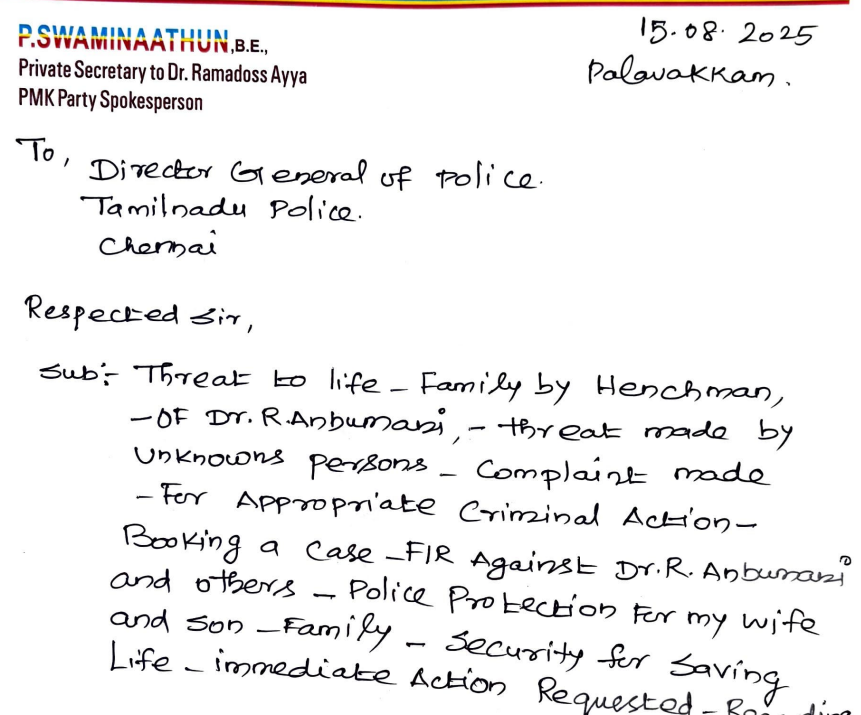 P.SWAMINAATHUN,B.E.,
Private Secretary to Dr. Ramadoss Ayya
PMK Party Spokesperson
15.08.2025
Palavakkam.
To,
Director General of Police.
Tamilnadu Police.
Chennai
Respected Sir,
Sub:- Threat to life - Family by Henchman,
- OF Dr. R.Anbumani, - threat made by
Unknowns persons - Complaint made
- For Appropriate Criminal Action -
Booking a Case - FIR Against Dr. R. Anbumani
and others - Police Protection For my wife
and son - Family - Security for Saving
Life - immediate Action Requested -